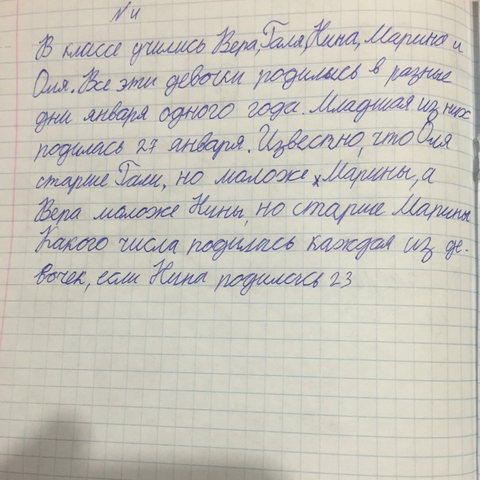 № 4
В классе учились Вера, Галя, Нина, Марина и
Оля. Все эти девочки родились в разные
дни января одного года. Младшая из них
родилась 27 января. Известно, что Оля
старше Гали, но моложе Марины, а
Вера моложе Нины, но старше Марины
Какого числа родилась каждая из де-
вочек, если Нина родилась 23